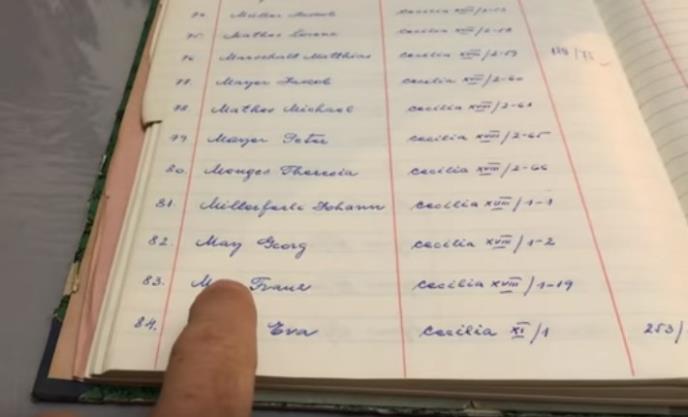 74. Müller Jacob cecilia XVIII/2-53
75. Mathes Lorenz cecilia XVIII/2-58
76. Marschalt Matthias cecilia XVIII/2-59
77. Mayer Jacob cecilia XVIII/2-60
78. Mathes Michael cecilia XVIII/2-61
79. Mayer Peter cecilia XVIII/2-65
80. Monges Theresia cecilia XVIII/2-66
81. Millerferli Johann cecilia XVIII/1-1
82. May Georg cecilia XVIII/1-2
83. Franz cecilia XVIII/1-19
84. Eva cecilia XI/1 253/